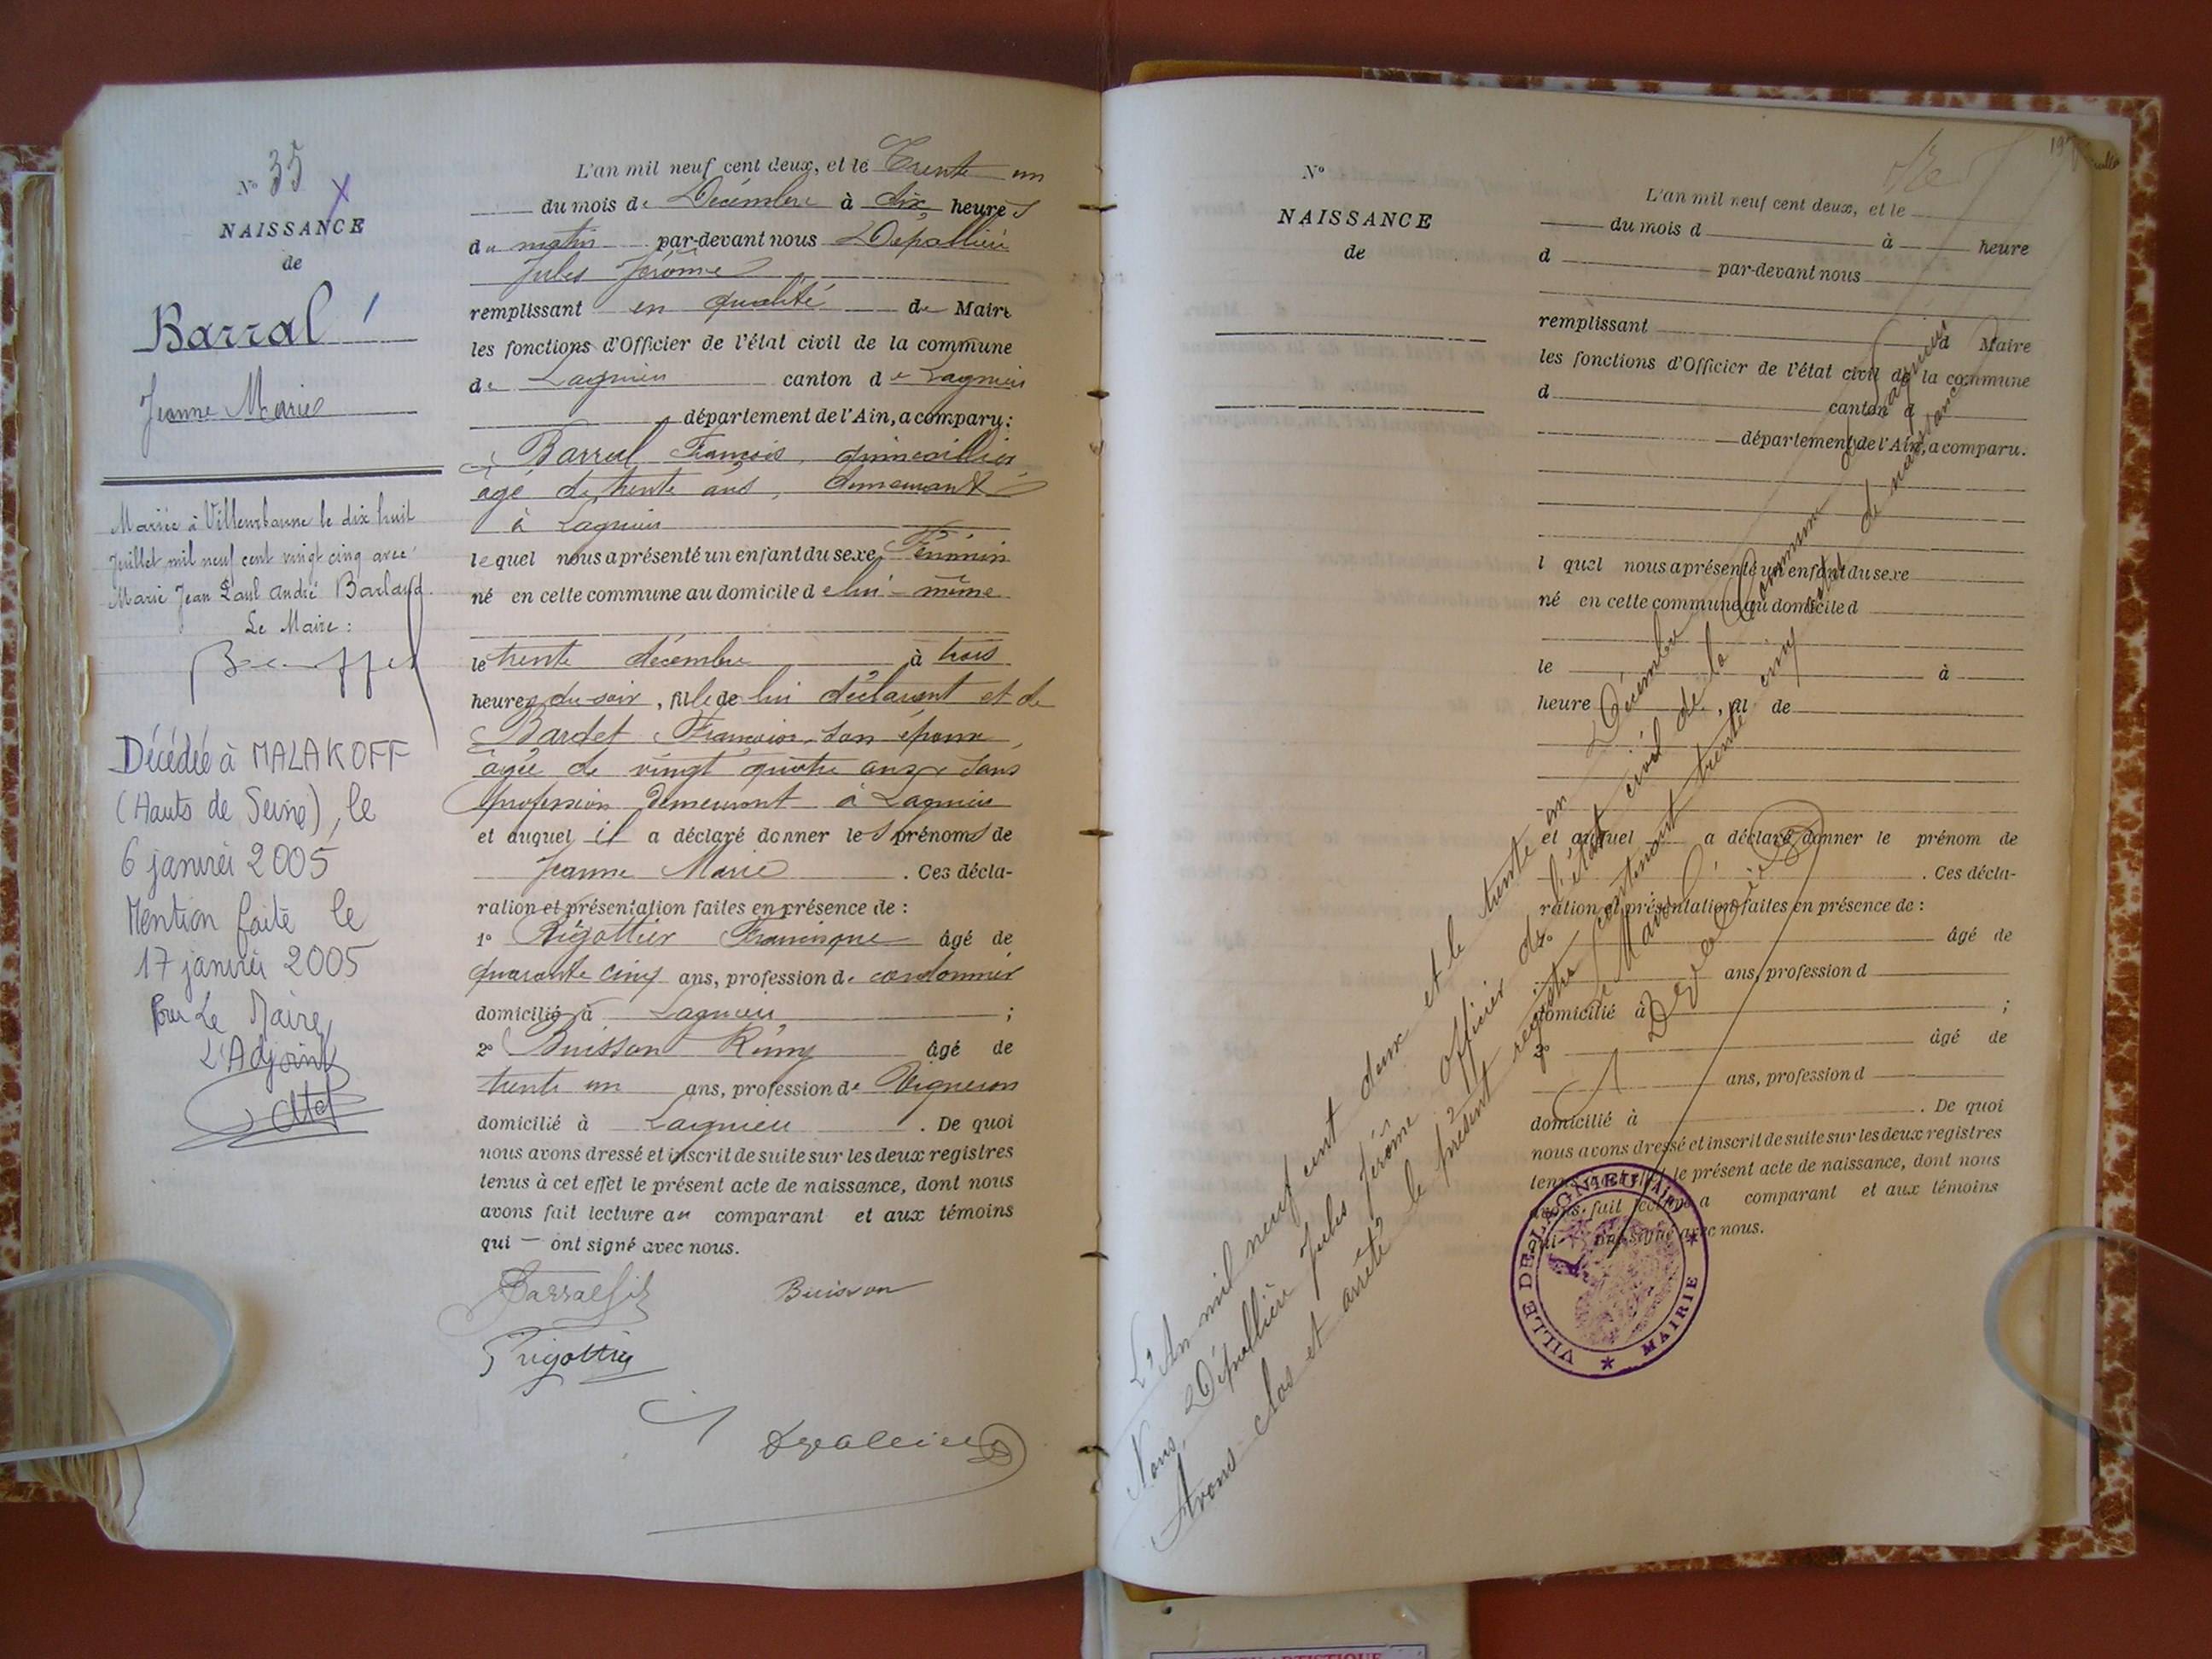 N° 35
NAISSANCE
de
Barral
Jeanne Marie
Mariée à Villeurbanne le dix huit
Juillet mil neuf cent vingt cinq avec
Marie Jean Paul André Barlaud.
Le Maire :
Décédée à MALAKOFF
(Hauts de Seine), le
6 janvier 2005
Mention faite le
17 janvier 2005
Pour Le Maire,
L'Adjoint
L'an mil neuf cent deux, et le Trente un
du mois de Décembre à dix heures
du matin par-devant nous Dépallière
Jules Jérôme
remplissant en qualité de Maire
les fonctions d'Officier de l'état civil de la commune
de Lagnieu canton de Lagnieu
département de l'Ain, a comparu :
Barral François, quincaillier
âgé de trente ans, demeurant
à Lagnieu
lequel nous a présenté un enfant du sexe Féminin
né en cette commune au domicile de lui-même
le trente décembre à trois
heures du soir, fille de lui déclarant et de
Bardet Françoise, son épouse,
âgée de vingt quatre ans, sans
profession demeurant à Lagnieu
et auquel il a déclaré donner les prénoms de
Jeanne Marie. Ces décla-
ration et présentation faites en présence de :
1° Rigottier Francisque âgé de
quarante cinq ans, profession de cordonnier
domicilié à Lagnieu ;
2° Buisson Rémy âgé de
trente un ans, profession de Vigneron
domicilié à Lagnieu. De quoi
nous avons dressé et inscrit de suite sur les deux registres
tenus à cet effet le présent acte de naissance, dont nous
avons fait lecture au comparant et aux témoins
qui — ont signé avec nous.
Barral fils
Buisson
Rigottier
Depallière
N°
NAISSANCE
de
L'an mil neuf cent deux, et le
du mois d à heure
d par-devant nous
remplissant d Maire
les fonctions d'Officier de l'état civil de la commune
d canton d
département de l'Ain, a comparu.
l quel nous a présenté un enfant du sexe
né en cette commune au domicile d
le à
heure , fil de
et auquel a déclaré donner le prénom de
. Ces décla-
ration et présentation faites en présence de :
1° âgé de
ans, profession d
domicilié à ;
2° âgé de
ans, profession d
domicilié à . De quoi
nous avons dressé et inscrit de suite sur les deux registres
tenus à cet effet le présent acte de naissance, dont nous
avons fait lecture a comparant et aux témoins
qui ont signé avec nous.
L'An mil neuf cent deux et le trente un Décembre
Nous Dépallière Jules Jérôme officier de l'état civil de la Commune de Lagnieu
Avons clos et arrêté le présent registre contenant trente cinq actes de naissance
Le Maire
Depallière
VILLE DE LAGNIEU (AIN)
MAIRIE